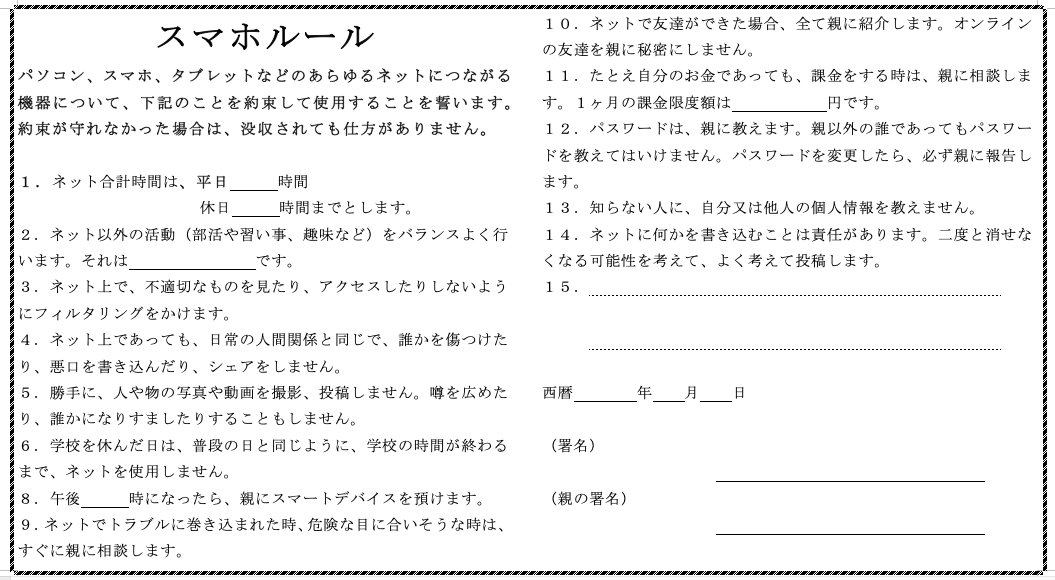 スマホルール
パソコン、スマホ、タブレットなどのあらゆるネットにつながる
機器について、下記のことを約束して使用することを誓います。
約束が守れなかった場合は、没収されても仕方がありません。
１．ネット合計時間は、平日______時間
休日______時間までとします。
２．ネット以外の活動（部活や習い事、趣味など）をバランスよく行
います。それは________________です。
３．ネット上で、不適切なものを見たり、アクセスしたりしないよう
にフィルタリングをかけます。
４．ネット上であっても、日常の人間関係と同じで、誰かを傷つけた
り、悪口を書き込んだり、シェアをしません。
５．勝手に、人や物の写真や動画を撮影、投稿しません。噂を広めた
り、誰かになりすましたりすることもしません。
６．学校を休んだ日は、普段の日と同じように、学校の時間が終わる
まで、ネットを使用しません。
８．午後______時になったら、親にスマートデバイスを預けます。
９．ネットでトラブルに巻き込まれた時、危険な目に合いそうな時は、
すぐに親に相談します。
１０．ネットで友達ができた場合、全て親に紹介します。オンライン
の友達を親に秘密にしません。
１１．たとえ自分のお金であっても、課金をする時は、親に相談しま
す。１ヶ月の課金限度額は____________円です。
１２．パスワードは、親に教えます。親以外の誰であってもパスワー
ドを教えてはいけません。パスワードを変更したら、必ず親に報告し
ます。
１３．知らない人に、自分又は他人の個人情報を教えません。
１４．ネットに何かを書き込むことは責任があります。二度と消せな
くなる可能性を考えて、よく考えて投稿します。
１５．
西暦________年____月____日
（署名）
（親の署名）